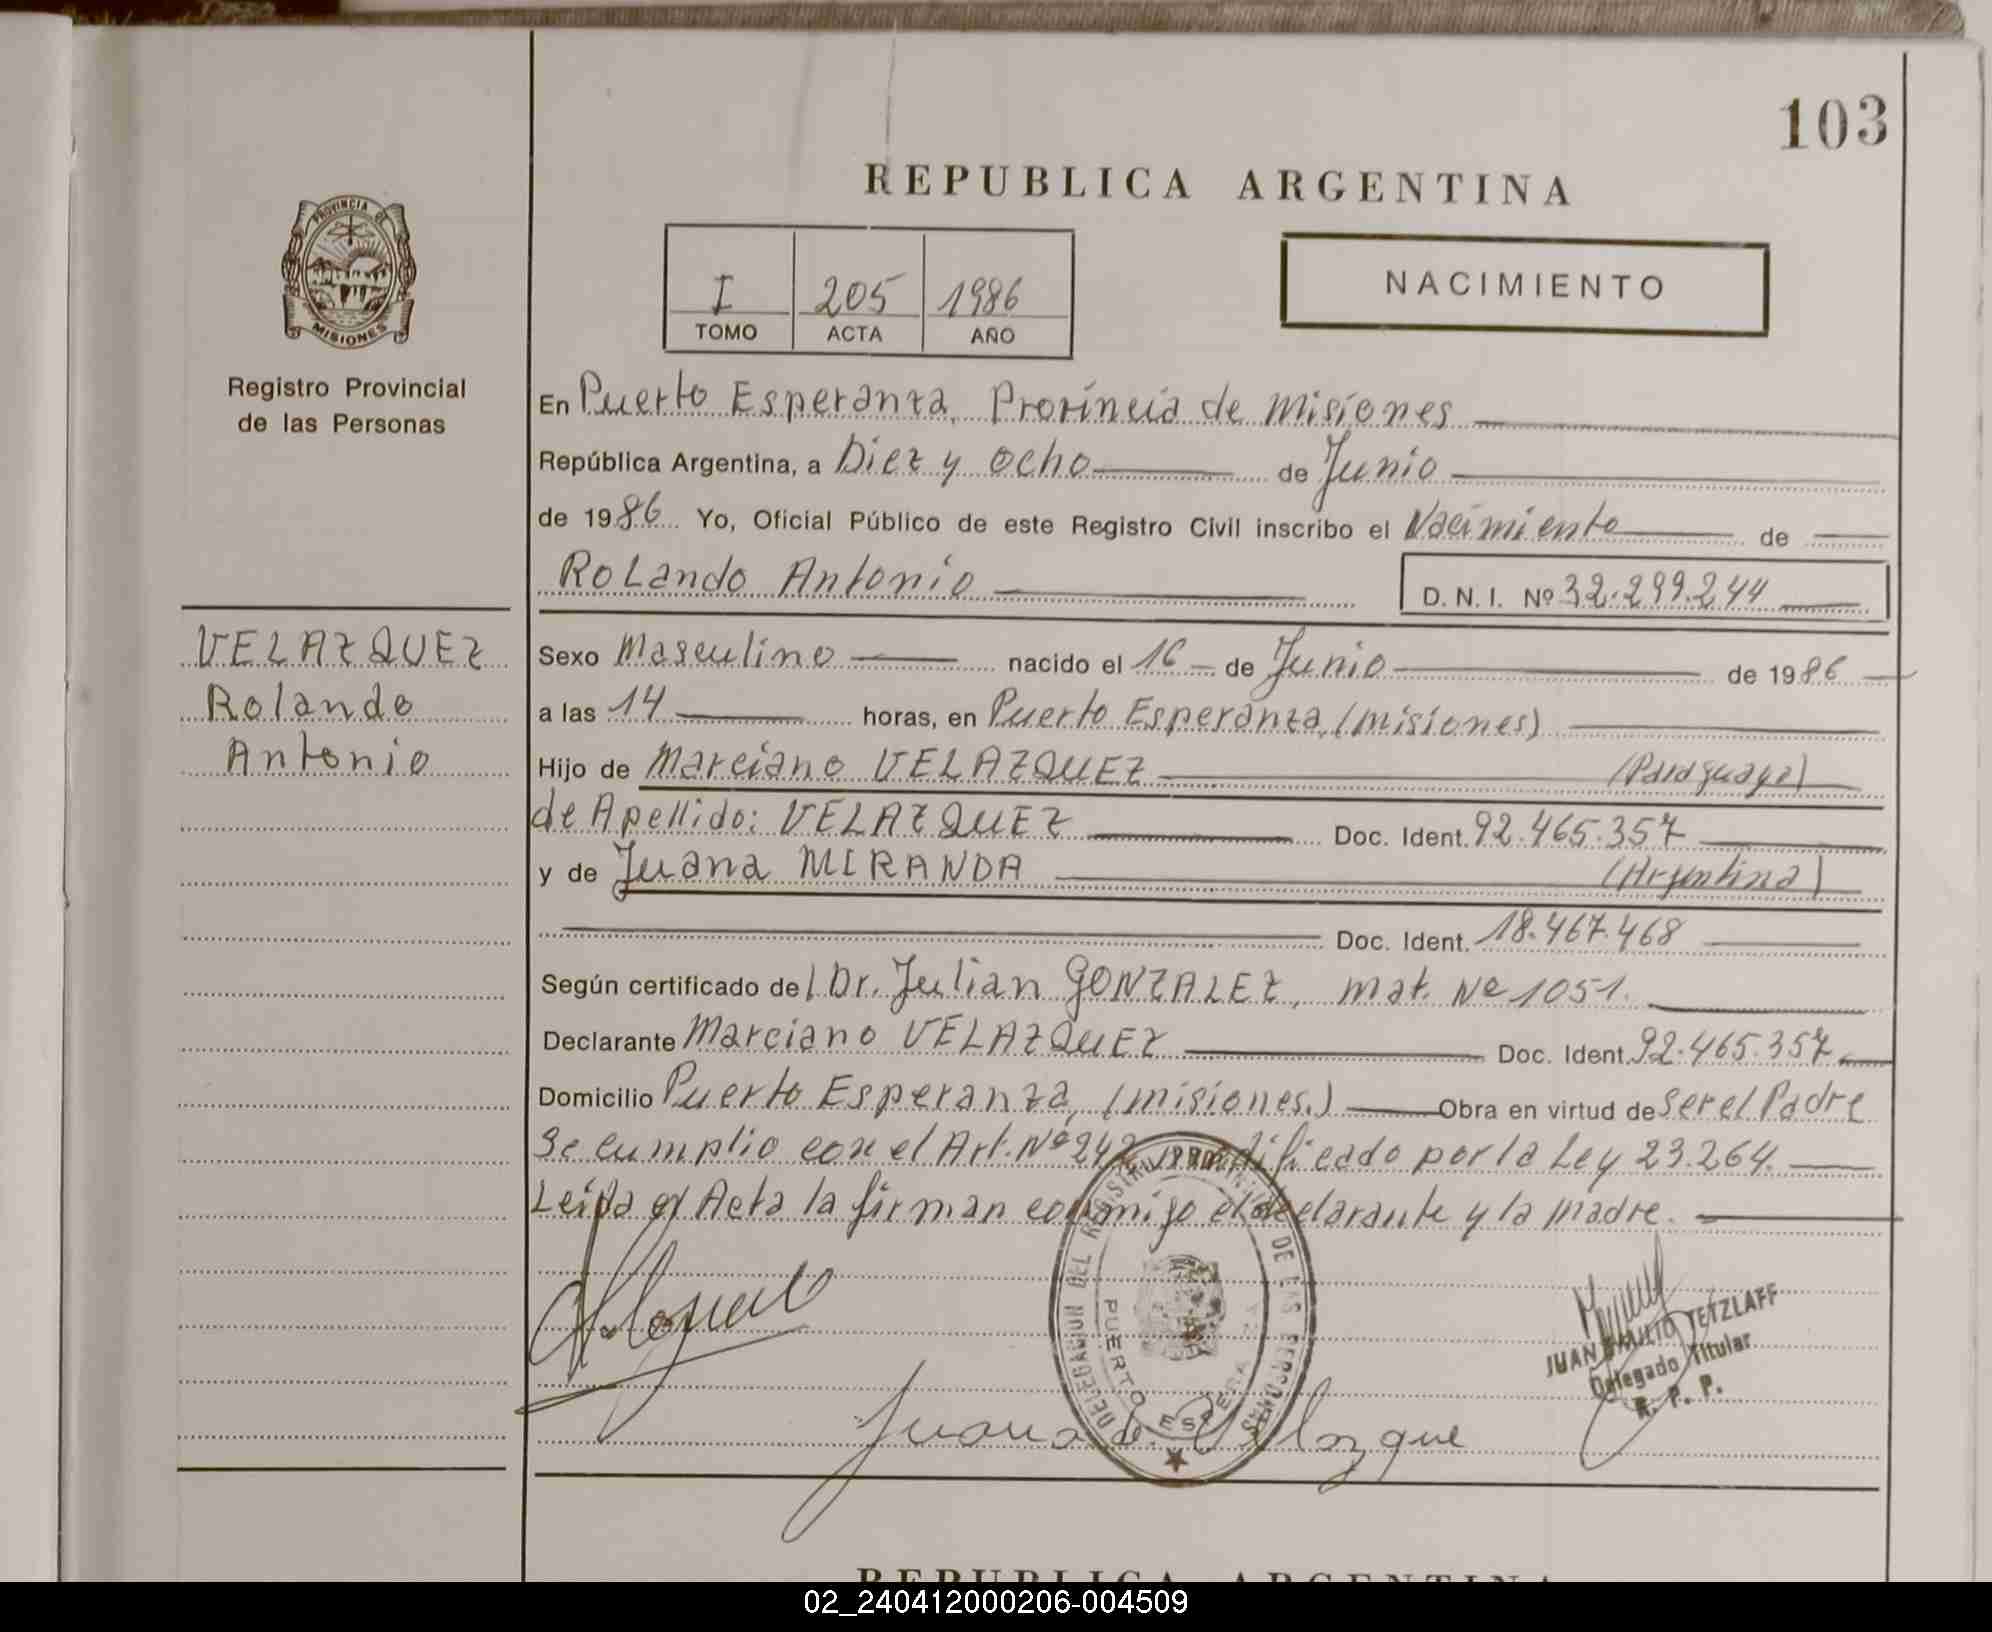 103
REPUBLICA ARGENTINA
I 205 1986
TOMO ACTA AÑO
NACIMIENTO
PROVINCIA DE
MISIONES
Registro Provincial
de las Personas
En Puerto Esperanza, Provincia de Misiones
República Argentina, a Diez y ocho de Junio
de 1986 Yo, Oficial Público de este Registro Civil inscribo el Nacimiento de
Rolando Antonio D. N. I. Nº 32.299.244
VELAZQUEZ
Rolando
Antonio
Sexo Masculino nacido el 16 de Junio de 1986
a las 14 horas, en Puerto Esperanza, (Misiones)
Hijo de Marciano VELAZQUEZ (Paraguayo)
de Apellido: VELAZQUEZ Doc. Ident. 92.465.357
y de Juana MIRANDA (Argentina)
Doc. Ident. 18.467.468
Según certificado del Dr. Julian GONZALEZ, Mat. Nº 1051.
Declarante Marciano VELAZQUEZ Doc. Ident. 92.465.357
Domicilio Puerto Esperanza, (Misiones.) Obra en virtud de ser el Padre
Se cumplio con el Art. Nº 242 modificado por la Ley 23.264.
Leida el Acta la firman conmigo el declarante y la madre.
DELEGACION DEL REGISTRO PROVINCIAL DE LAS PERSONAS
PUERTO ESPERANZA
JUAN EMILIO TETZLAFF
Delegado Titular
R. P. P.
Juana d. Velazque
REPUBLICA ARGENTINA
02_240412000206-004509